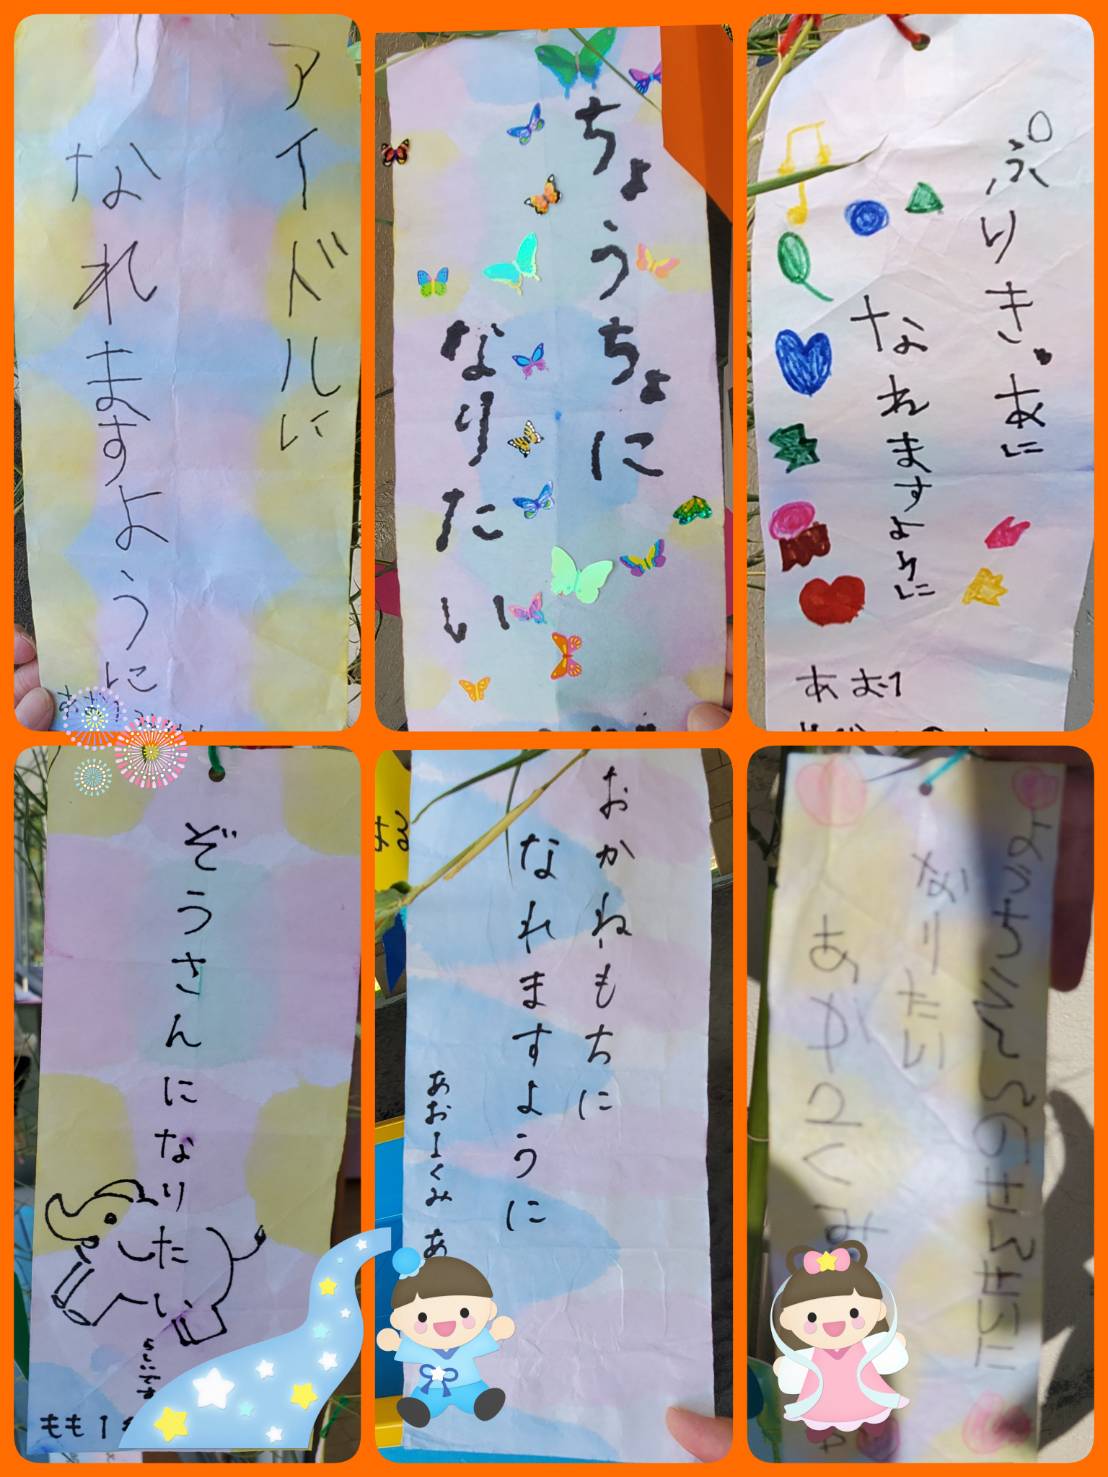 アイドルに
なれますように
ちょうちょに
なりたい
ぷりきゅあに
なれますように
ぞうさんになりたい
らしいです
もも1
おかねもちに
なれますように
あおーくみ あ
ようちえんのせんせいに
なりたい